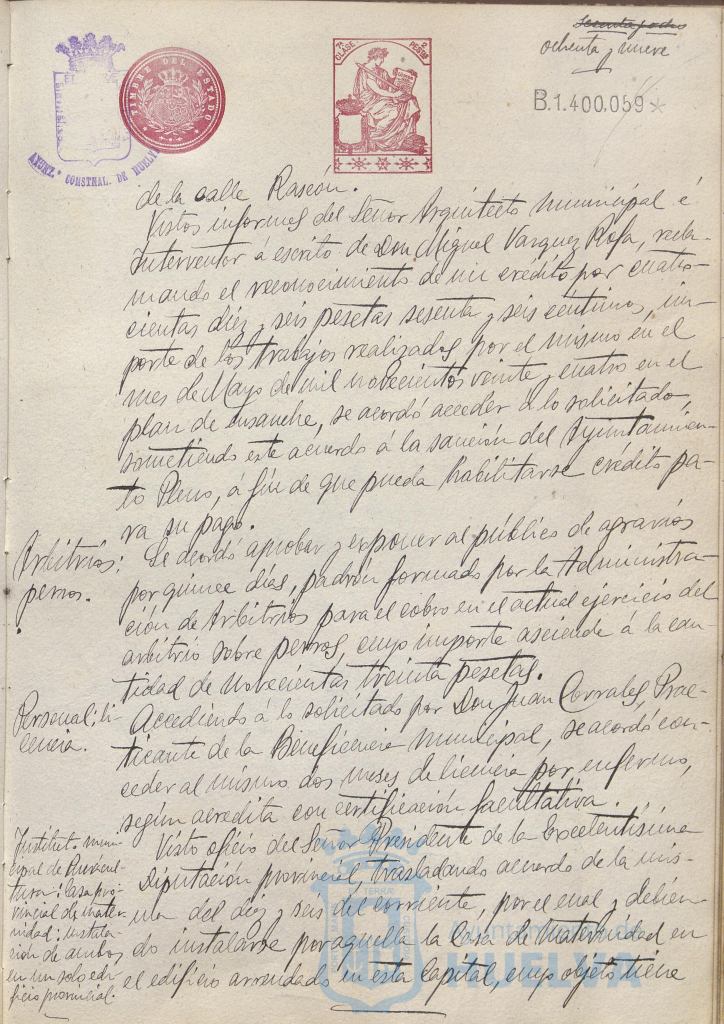 ochenta y nueve
TIMBRE DEL ESTADO
AYUNT.º CONSTNAL. DE HUELVA
7ª CLASE
2 PESETAS
B.1.400,059*
de la calle Rascón.
Vistos informes del Señor Arquitecto municipal é
Interventor á escrito de Don Miguel Vazquez Rofa, recla-
mando el reconocimiento de un crédito por cuatro-
cientas diez y seis pesetas sesenta y seis céntimos, im-
porte de los trabajos realizados por el mismo en el
mes de Mayo de mil novecientos veinte y cuatro en el
plan de ensanche, se acordó acceder á lo solicitado,
sometiendo este acuerdo á la sanción del Ayuntamien-
to Pleno, á fin de que pueda habilitarse crédito pa-
ra su pago.
Arbitrios:
perros.
Se acordó aprobar y exponer al público de agravios
por quince días, padrón formado por la Administra-
ción de Arbitrios para el cobro en el actual ejercicio del
arbitrio sobre perros, cuyo importe asciende á la can-
tidad de novecientas treinta pesetas.
Personal: li-
cencia.
Accediendo á lo solicitado por Don Juan Corrales, Prac-
ticante de la Beneficencia municipal, se acordó con-
ceder al mismo dos meses de licencia por enfermo,
según acredita con certificación facultativa.
Instituto muni-
cipal de Puericul-
tura: Casa pro-
vincial de mater-
nidad: instala-
cion de ambos
en un solo edi-
ficio provincial.
Visto oficio del Señor Presidente de la Excelentísima
Diputación provincial, trasladando acuerdo de la mis-
ma del diez y seis del corriente, por el cual y debien-
do instalarse por aquella la Casa de Maternidad en
el edificio arrendado en esta Capital, cuyo objeto tiene
Ayuntamiento de
HUELVA